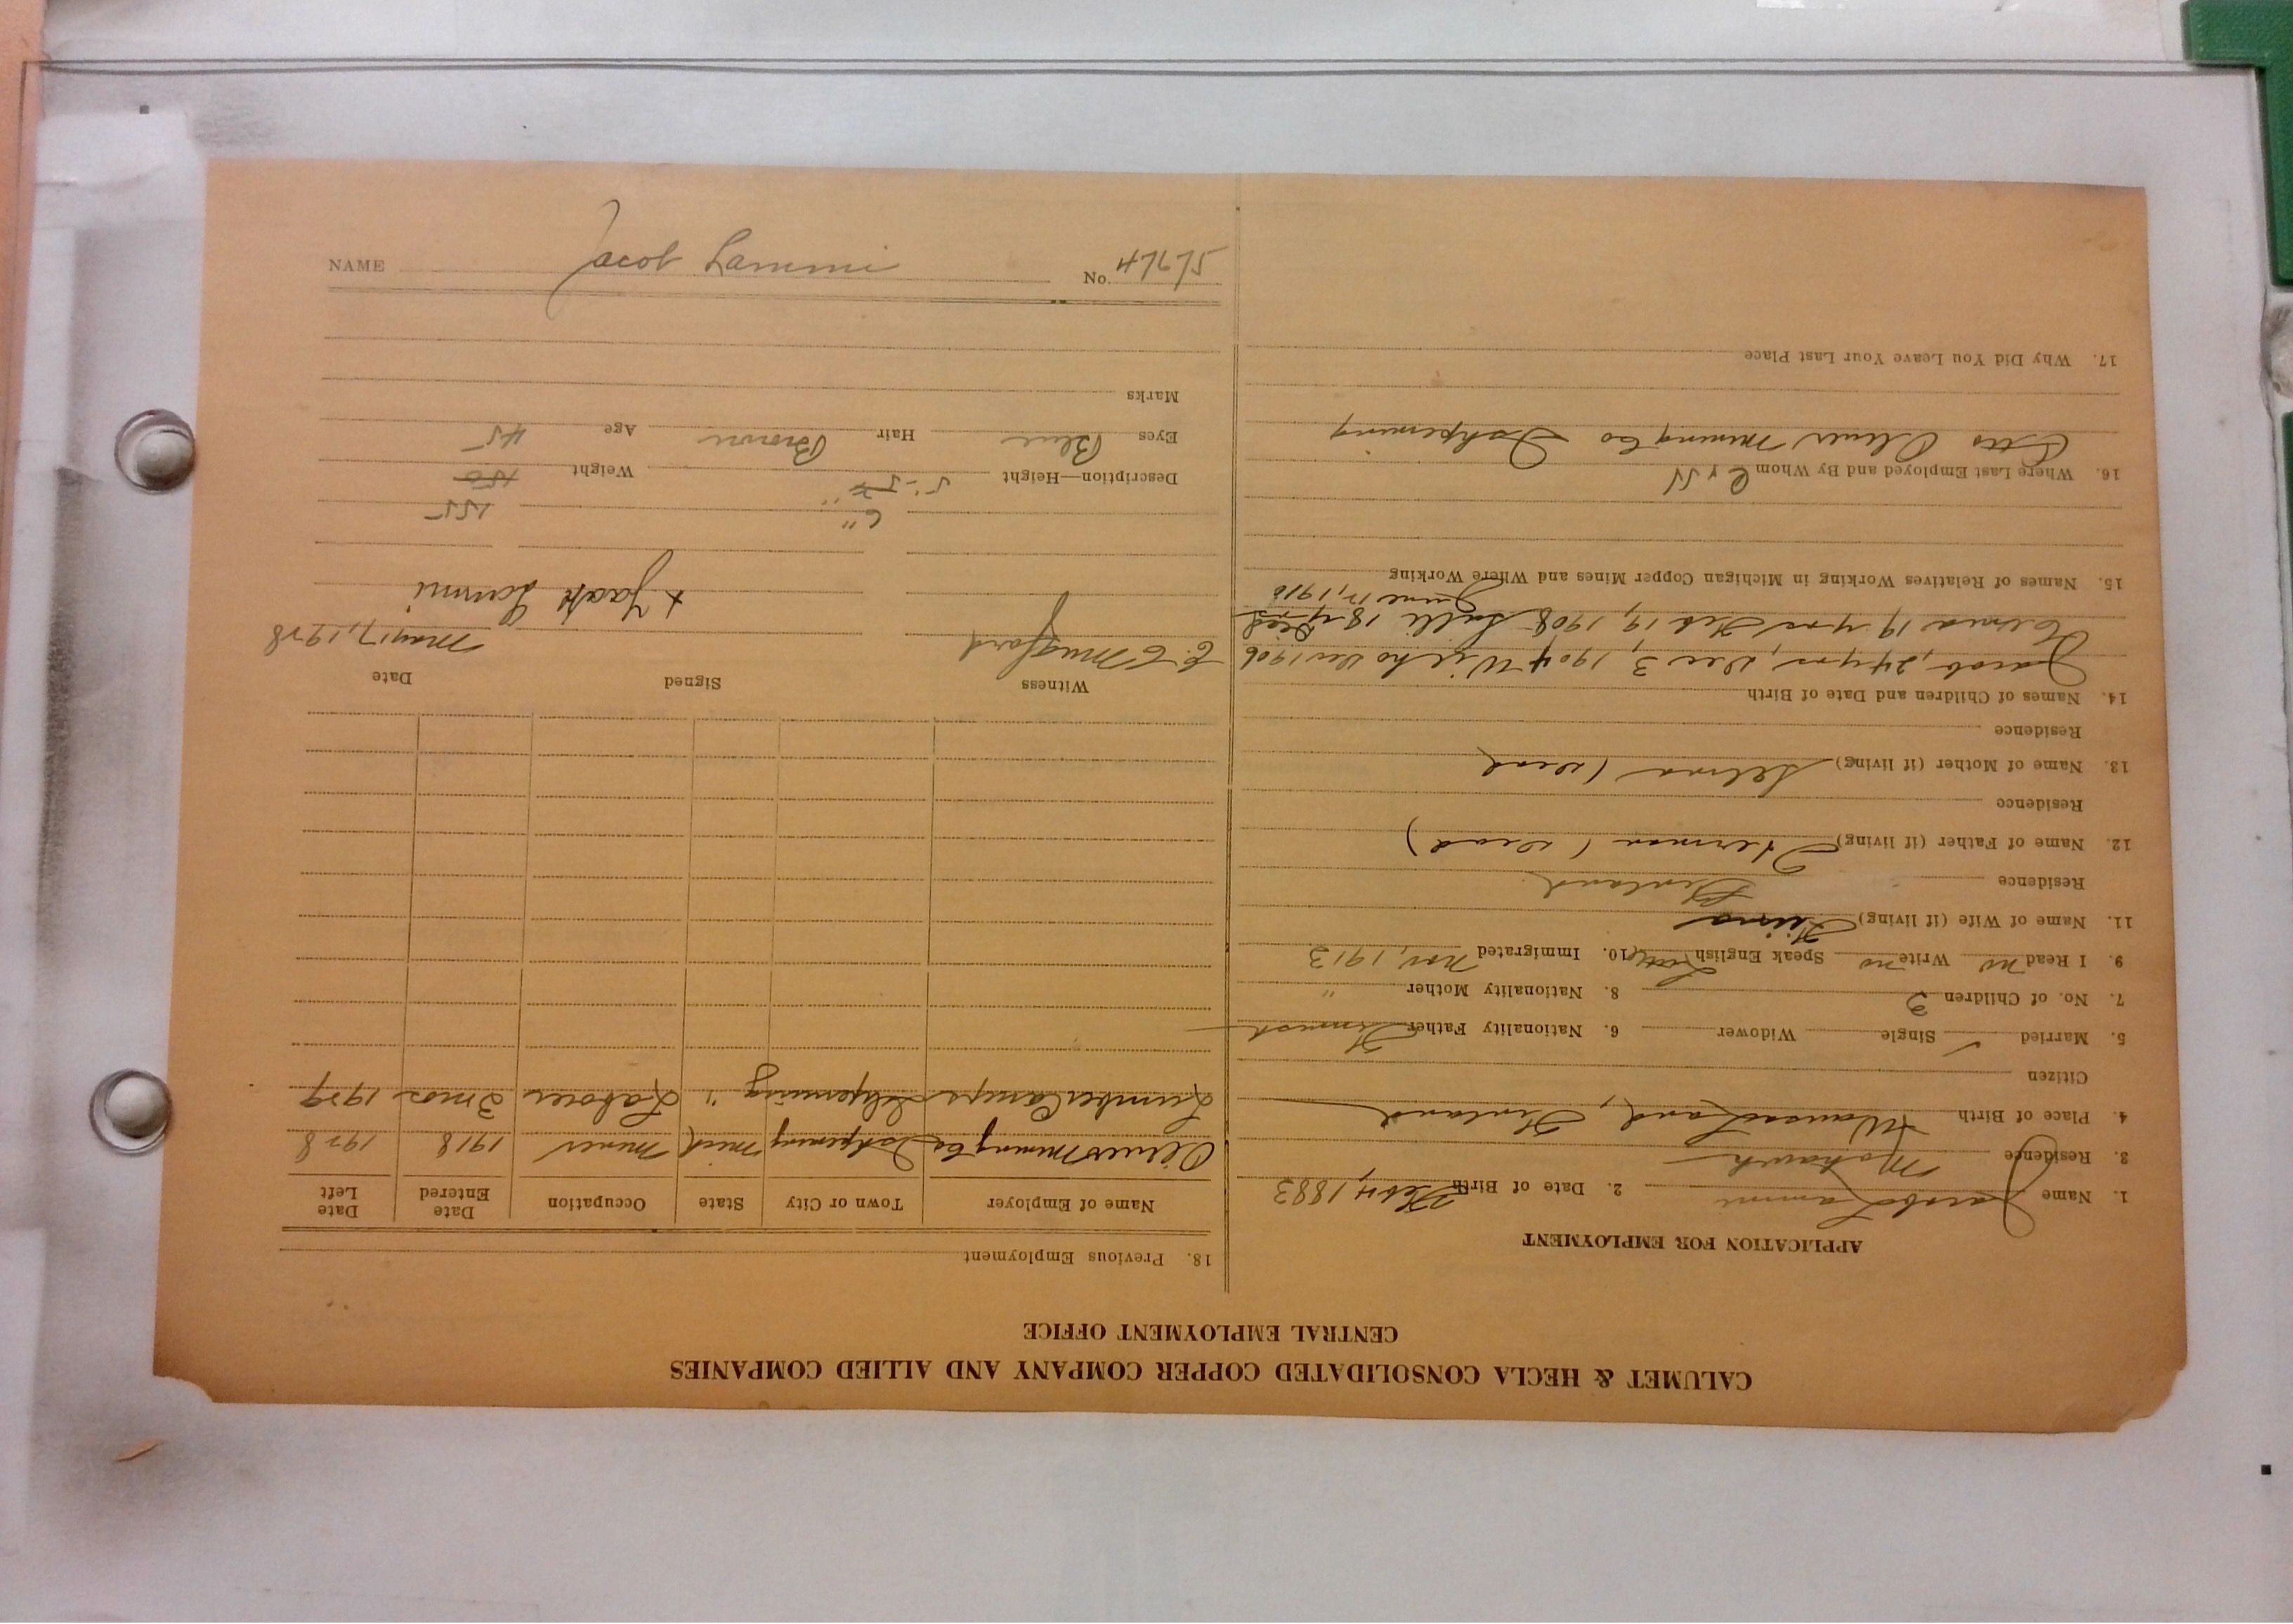 CALUMET & HECLA CONSOLIDATED COPPER COMPANY AND ALLIED COMPANIES
CENTRAL EMPLOYMENT OFFICE
APPLICATION FOR EMPLOYMENT
1. Name Jacob Lammi 2. Date of Birth Feb 4, 1883
3. Residence Mohawk
4. Place of Birth Finland
Citizen
5. Married ✓ Single Widower 6. Nationality Father Finnish
7. No. of Children 3 8. Nationality Mother "
9. I Read no Write no Speak English 10. Immigrated Nov, 1913
11. Name of Wife (if living)
Residence Finland
12. Name of Father (if living) Herman (dead)
Residence
13. Name of Mother (if living) Selma (dead
Residence
14. Names of Children and Date of Birth
Jacob, 24 yrs, Dec 3, 1904 Dec 1906
19 yrs Feb 19, 1908 18 yrs Died
June 12, 1910
15. Names of Relatives Working in Michigan Copper Mines and Where Working
16. Where Last Employed and By Whom
Oliver Mining Co Ishpeming
17. Why Did You Leave Your Last Place
18. Previous Employment
Name of Employer Town or City State Occupation Date Entered Date Left
Oliver Mining Co Ishpeming Mich Miner 1918 1928
Lumber Camps Ishpeming " Laborer 3 mos 1929
Witness Signed Date
E. E. Mugford May 17, 1928
+ Jaakk Lammi
6" 155
Description—Height 5'-5 Weight 150
Eyes Blue Hair Brown Age 45
Marks
NAME Jacob Lammi No. 47675